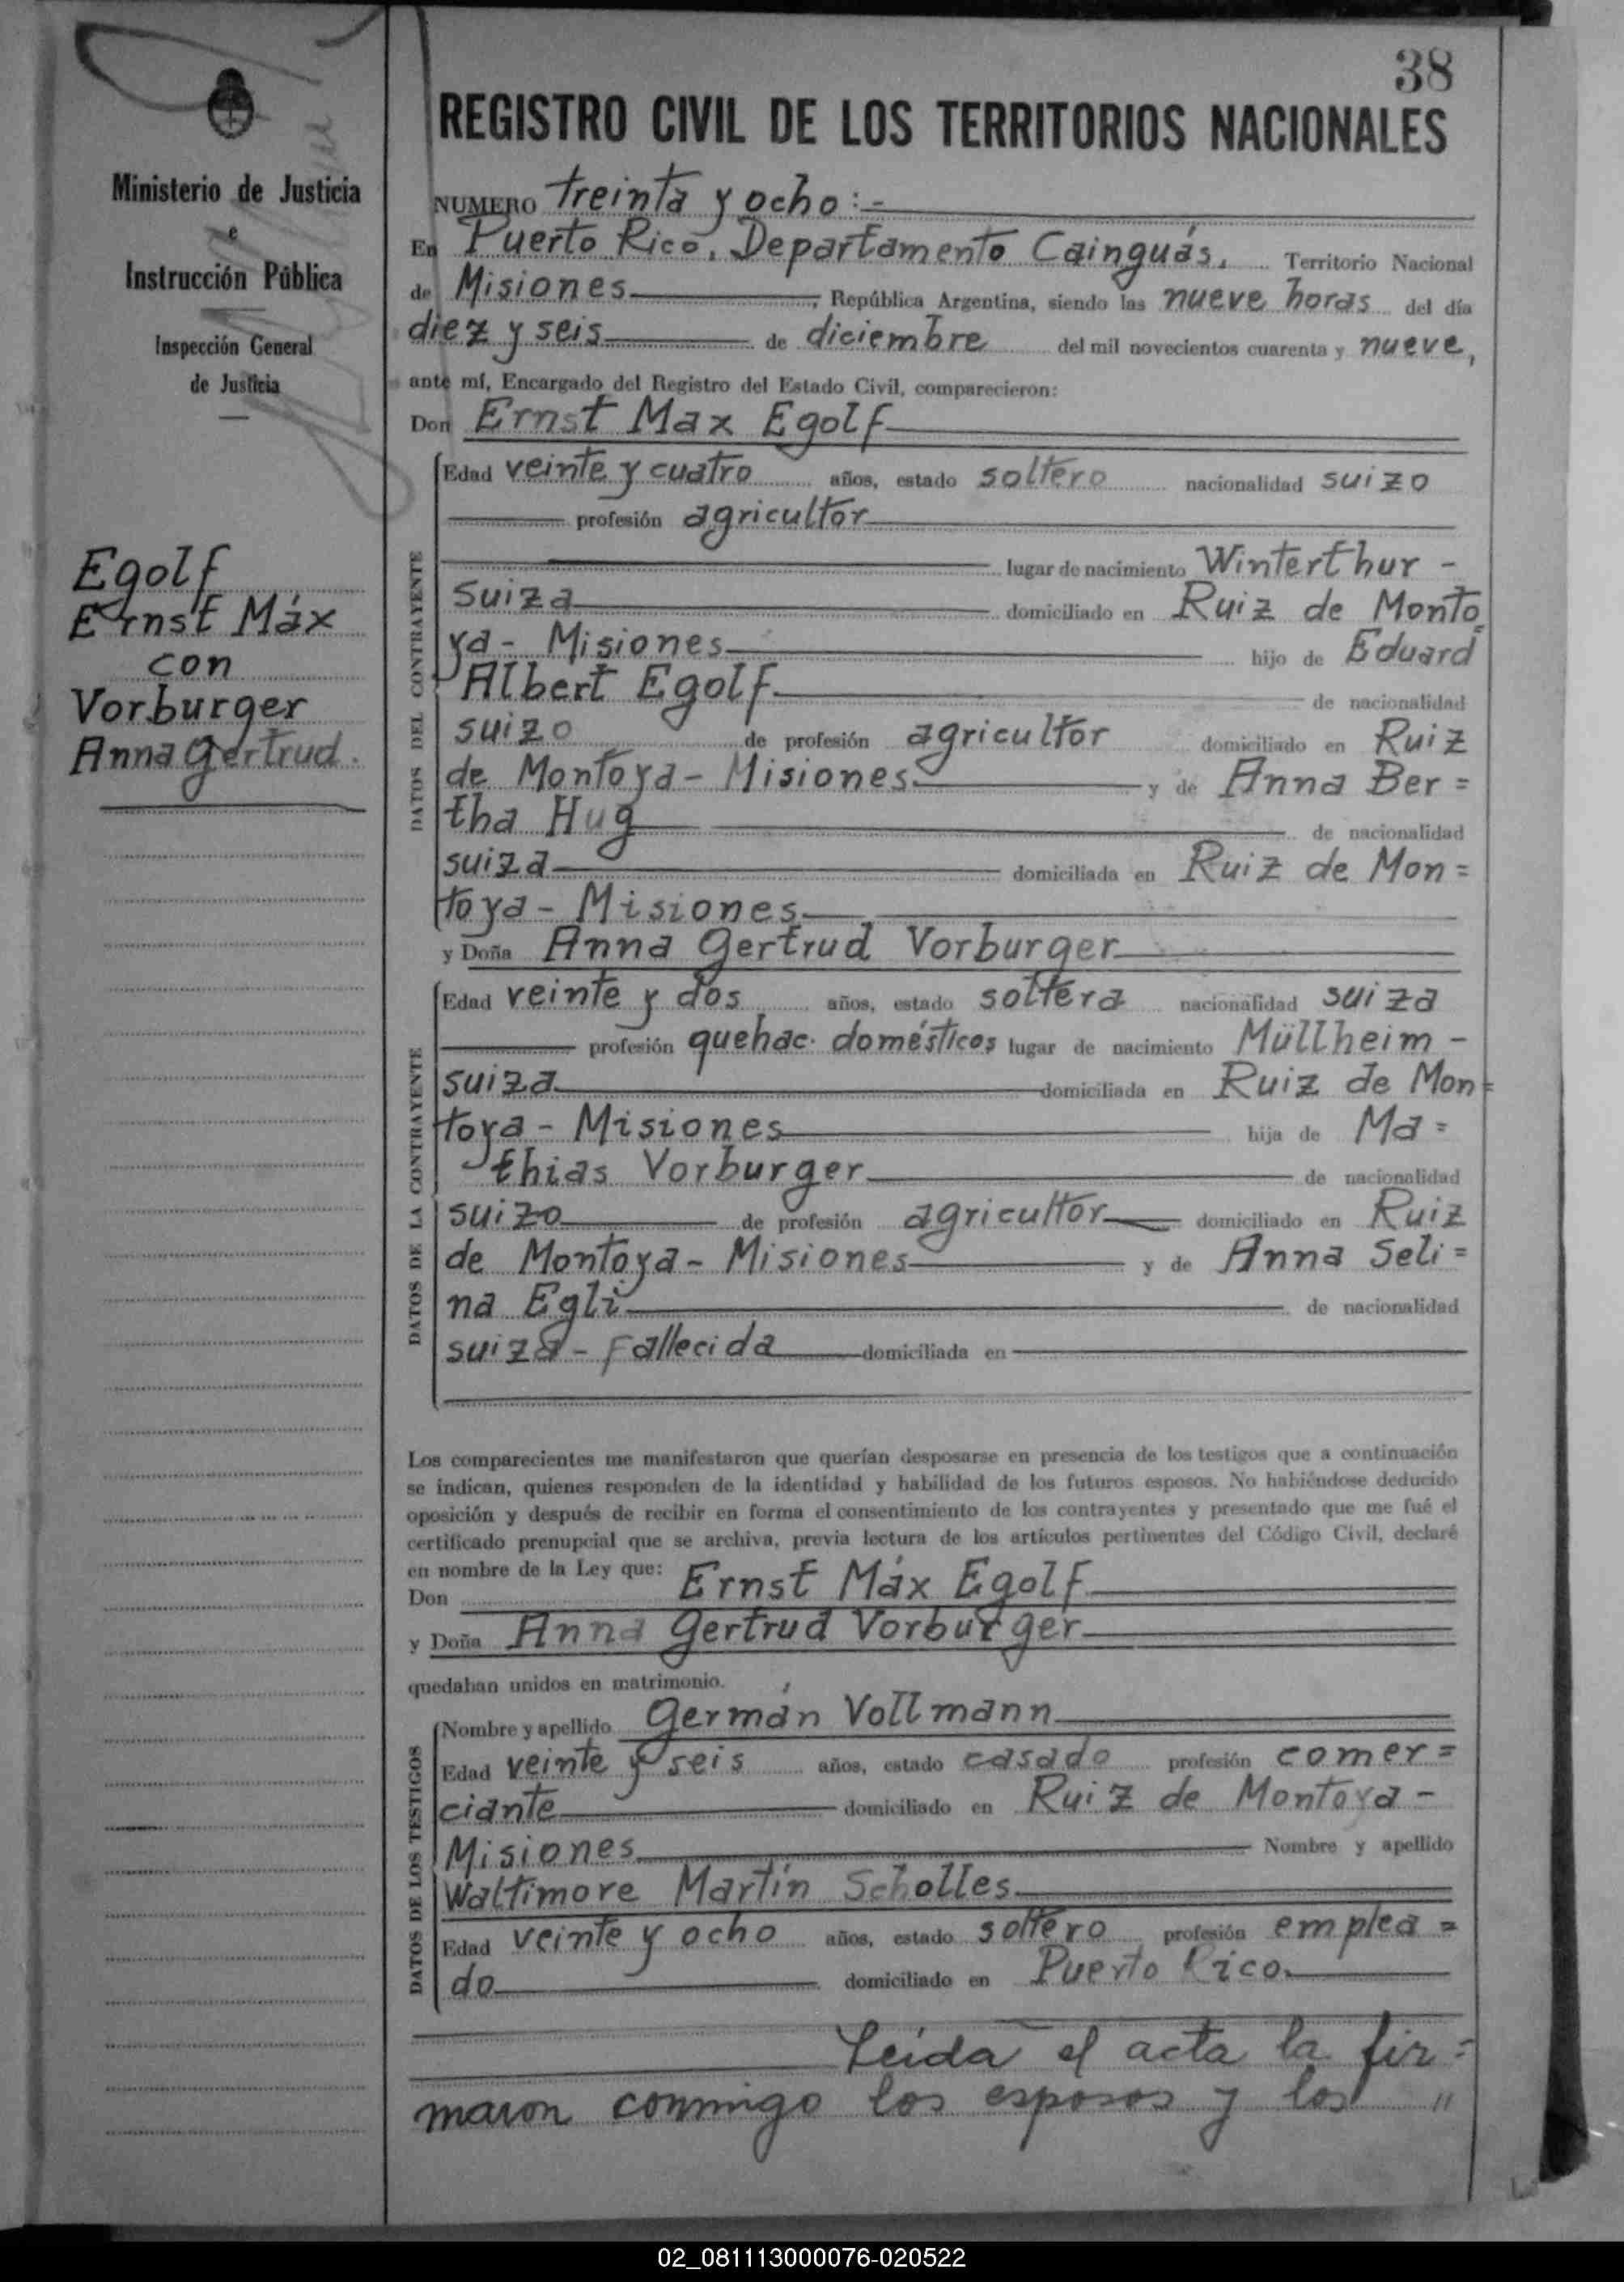 38
Ministerio de Justicia
e
Instrucción Pública
Inspección General
de Justicia
Egolf
Ernst Máx
con
Vorburger
Anna Gertrud.
REGISTRO CIVIL DE LOS TERRITORIOS NACIONALES
NUMERO treinta y ocho:-
En Puerto Rico, Departamento Cainguás, Territorio Nacional
de Misiones, República Argentina, siendo las nueve horas del día
diez y seis de diciembre del mil novecientos cuarenta y nueve,
ante mí, Encargado del Registro del Estado Civil, comparecieron:
Don Ernst Max Egolf
DATOS DEL CONTRAYENTE
Edad veinte y cuatro años, estado soltero nacionalidad suizo
profesión agricultor
lugar de nacimiento Winterthur -
Suiza domiciliado en Ruiz de Monto
ya - Misiones hijo de Eduard
Albert Egolf de nacionalidad
suizo de profesión agricultor domiciliado en Ruiz
de Montoya - Misiones y de Anna Ber=
tha Hug de nacionalidad
suiza domiciliada en Ruiz de Mon=
toya - Misiones
y Doña Anna Gertrud Vorburger
DATOS DE LA CONTRAYENTE
Edad veinte y dos años, estado soltera nacionalidad suiza
profesión quehac. domésticos lugar de nacimiento Müllheim -
suiza domiciliada en Ruiz de Mon=
toya - Misiones hija de Ma=
thias Vorburger de nacionalidad
suizo de profesión agricultor domiciliado en Ruiz
de Montoya - Misiones y de Anna Seli=
na Egli de nacionalidad
suiza - Fallecida domiciliada en
Los comparecientes me manifestaron que querían desposarse en presencia de los testigos que a continuación
se indican, quienes responden de la identidad y habilidad de los futuros esposos. No habiéndose deducido
oposición y después de recibir en forma el consentimiento de los contrayentes y presentado que me fué el
certificado prenupcial que se archiva, previa lectura de los artículos pertinentes del Código Civil, declaré
en nombre de la Ley que:
Don Ernst Máx Egolf
y Doña Anna Gertrud Vorburger
quedaban unidos en matrimonio.
DATOS DE LOS TESTIGOS
Nombre y apellido Germán Vollmann
Edad veinte y seis años, estado casado profesión comer=
ciante domiciliado en Ruiz de Montoya -
Misiones Nombre y apellido
Waltimore Martín Scholles
Edad veinte y ocho años, estado soltero profesión emplea=
do domiciliado en Puerto Rico.
Leída el acta la fir=
maron conmigo los esposos y los "
02_081113000076-020522